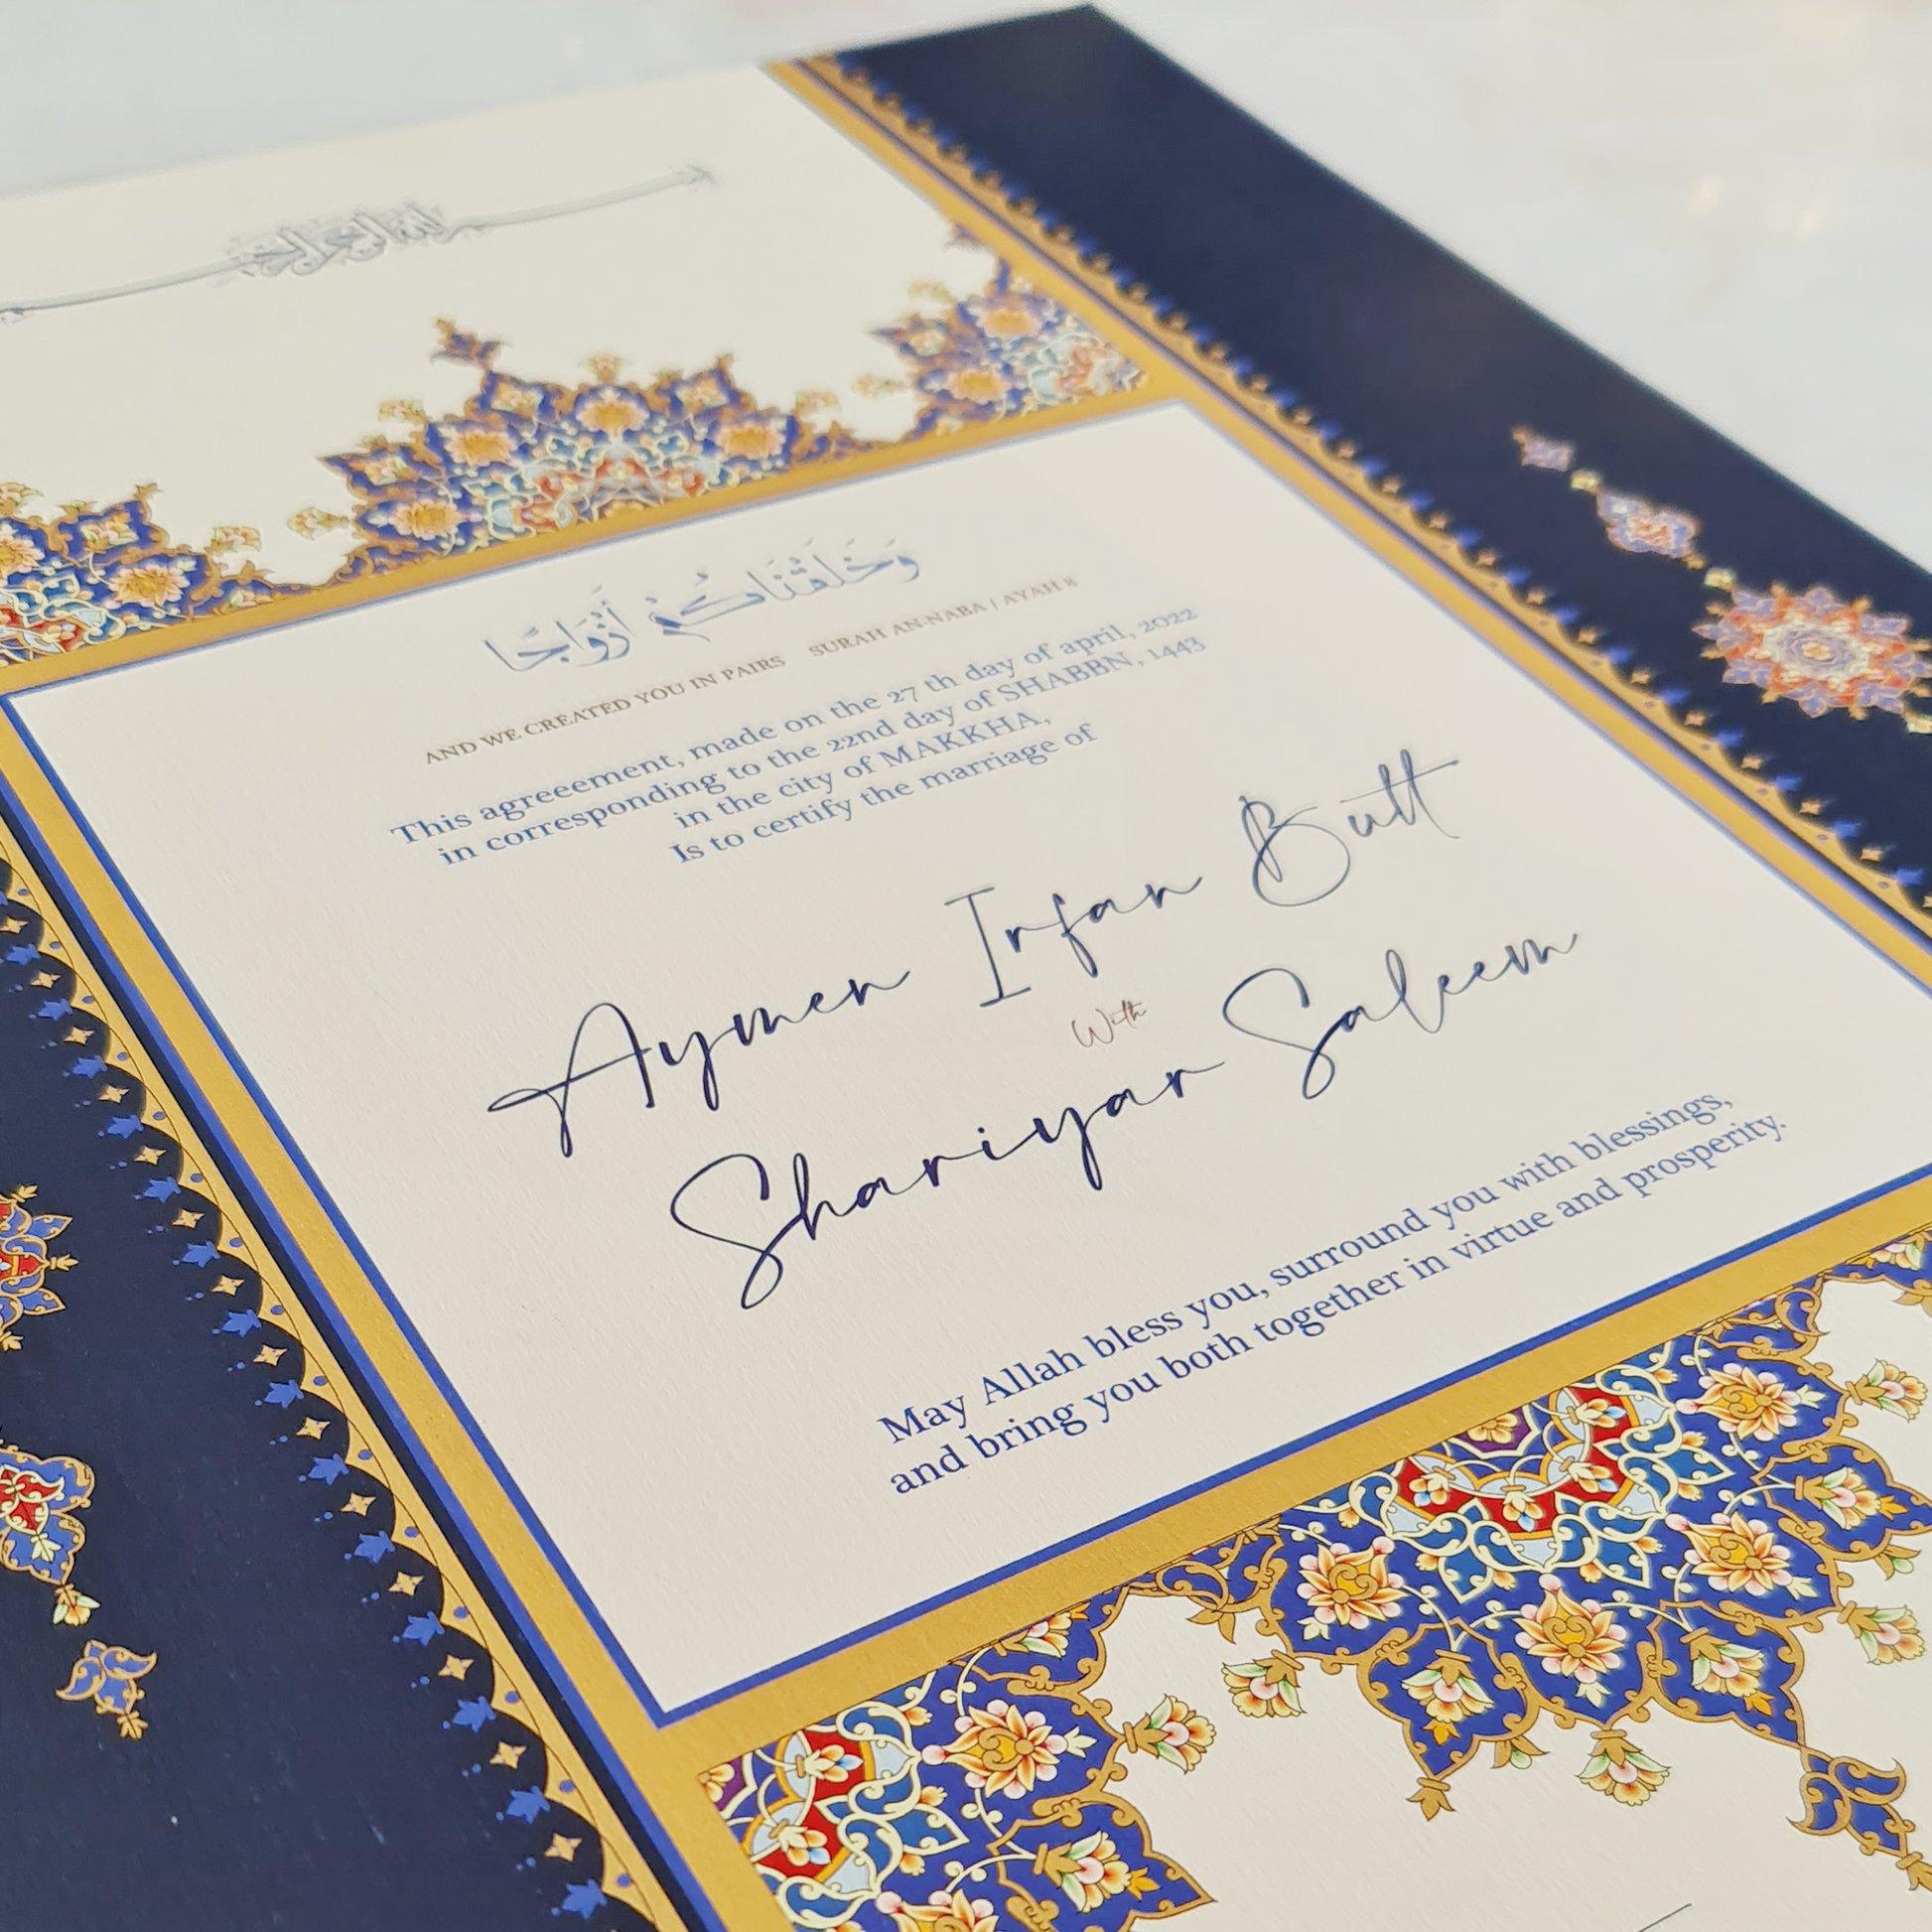 وَخَلَقْنَاكُمْ أَزْوَاجًا
AND WE CREATED YOU IN PAIRS SURAH AN-NABA | AYAH 8
This agreeement, made on the 27 th day of april, 2022
in corresponding to the 22nd day of SHABBN, 1443
in the city of MAKKHA,
Is to certify the marriage of
Aymen Irfan Butt
With
Shariyar Saleem
May Allah bless you, surround you with blessings,
and bring you both together in virtue and prosperity.